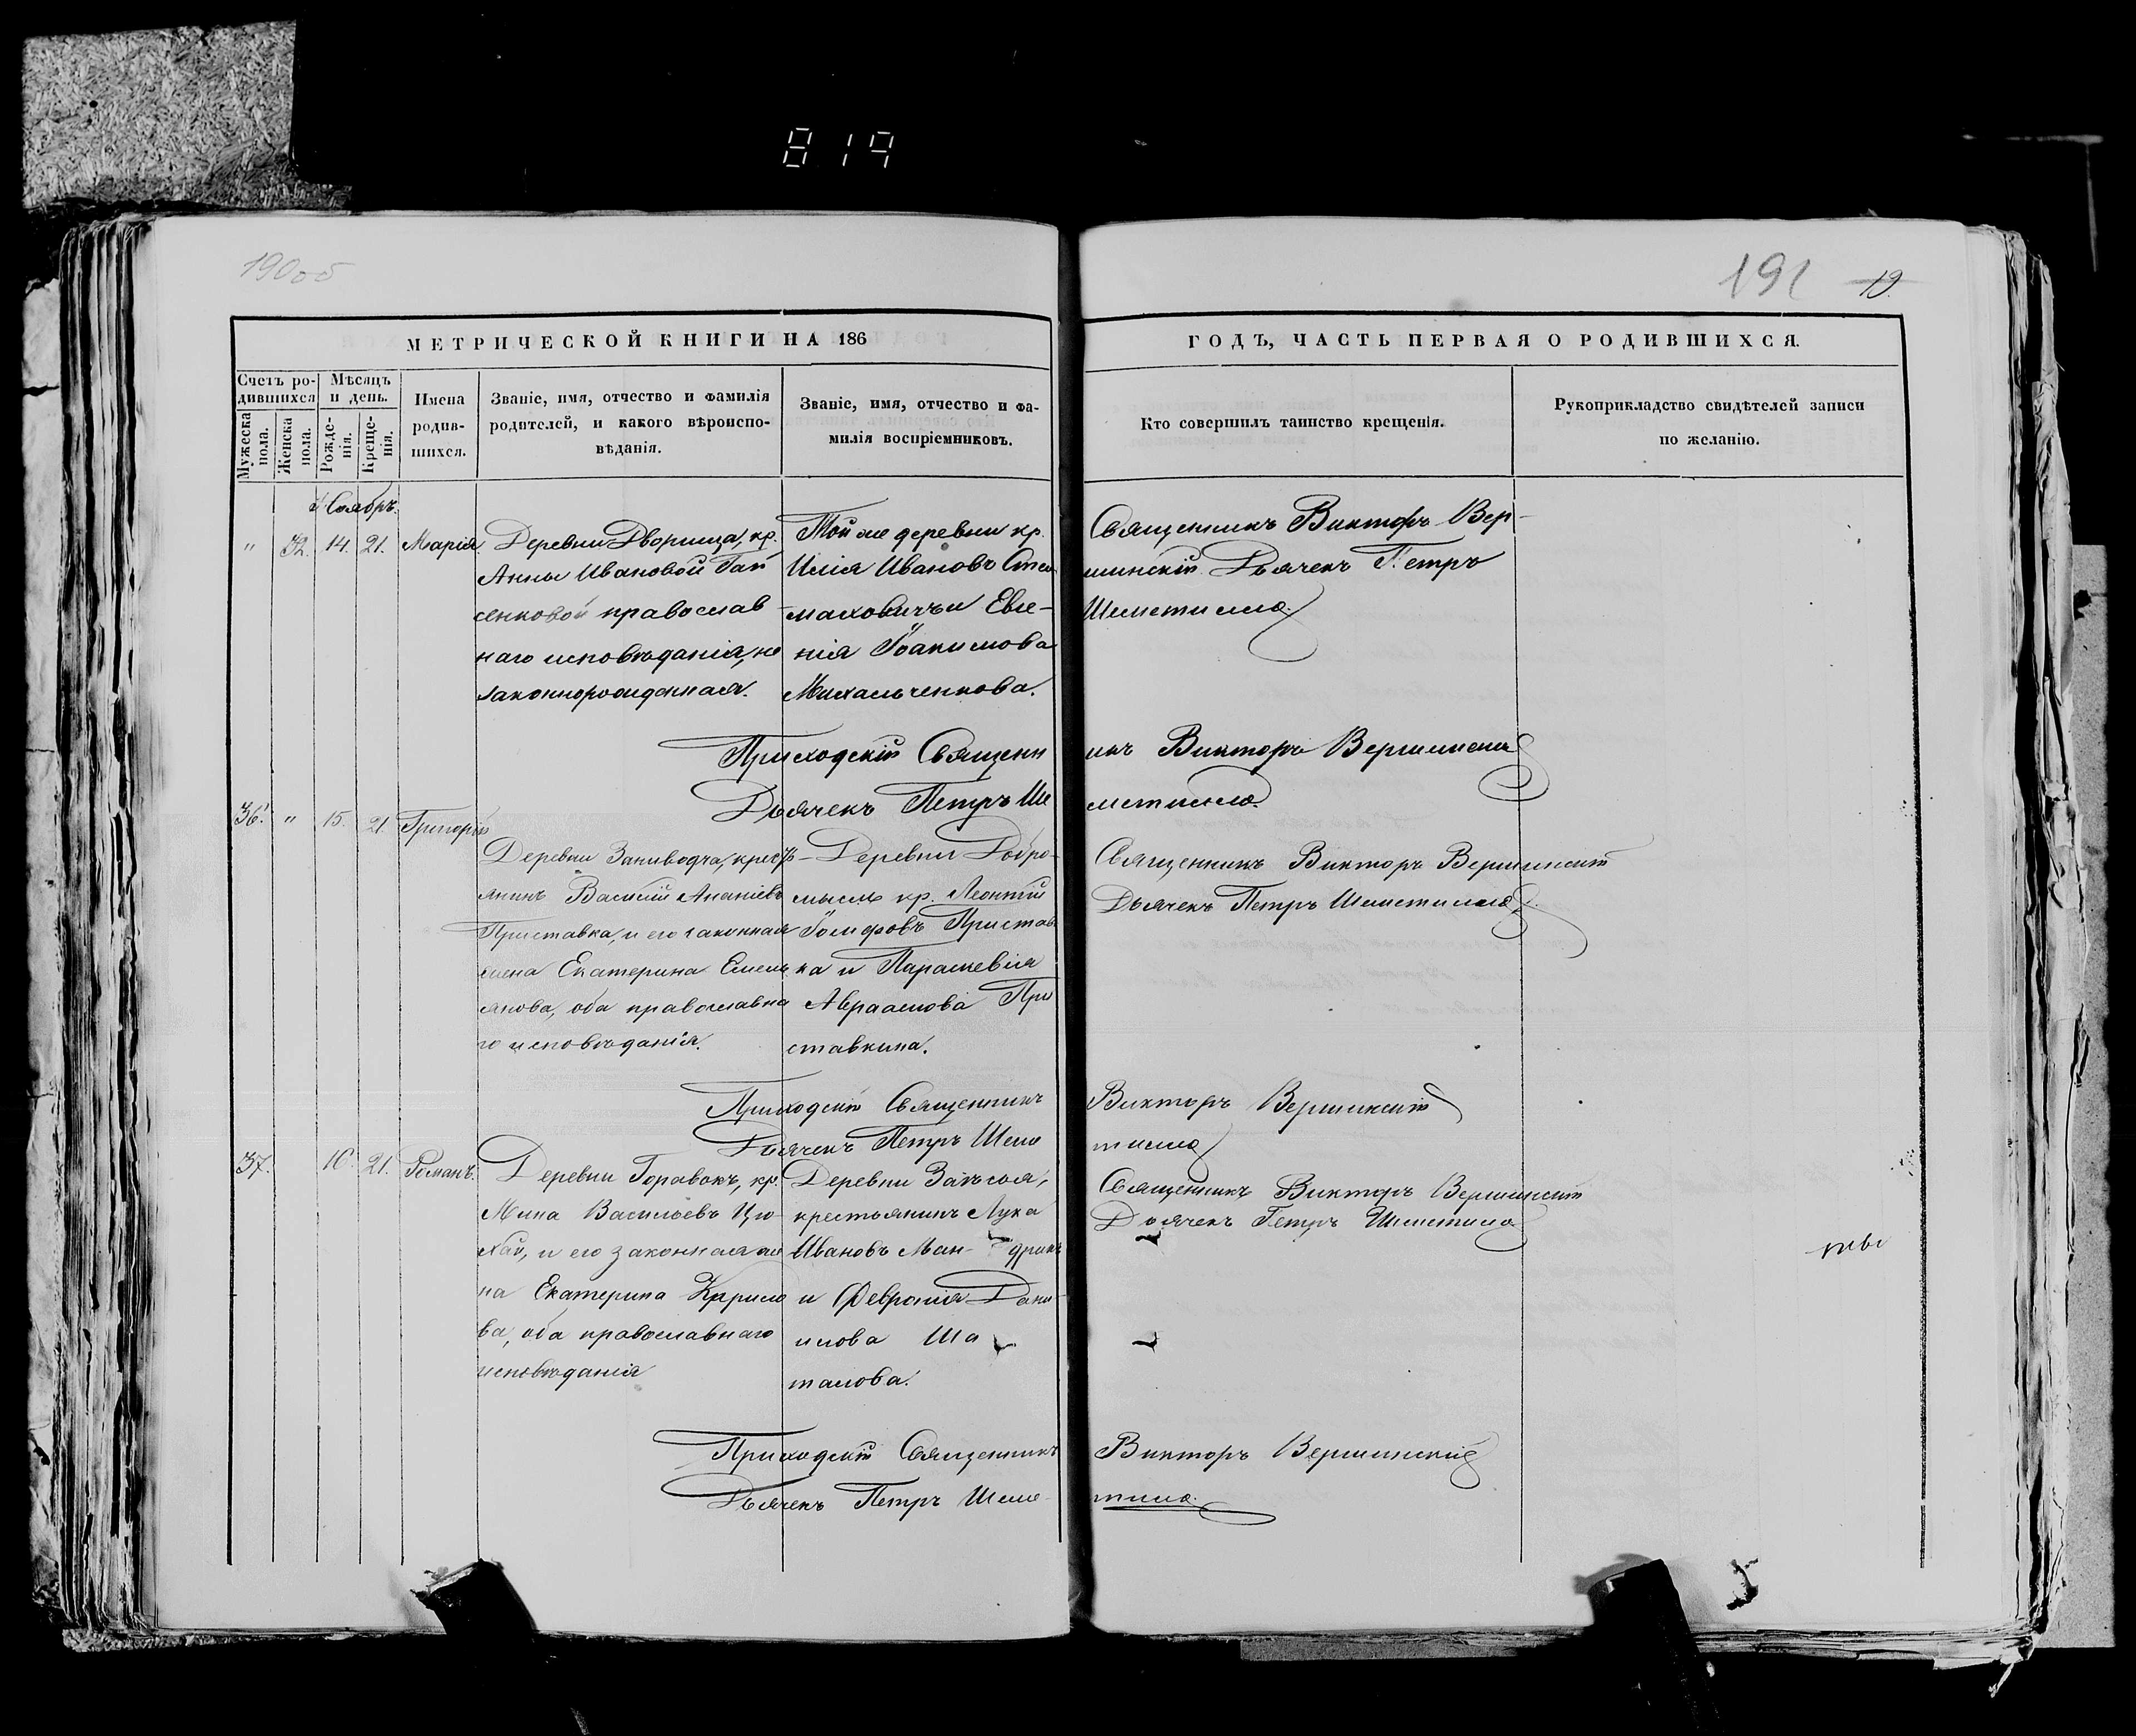 819
190об
191 19.
МЕТРИЧЕСКОЙ КНИГИ НА 186
ГОДЪ, ЧАСТЬ ПЕРВАЯ О РОДИВШИХСЯ.
Счетъ родившихся
Мужеска пола.
Женска пола.
Мѣсяцъ и день.
Рожденія.
Крещенія.
Имена родившихся.
Званіе, имя, отчество и фамилія
родителей, и какого вѣроиспо-
вѣданія.
Званіе, имя, отчество и фа-
милія воспріемниковъ.
Кто совершилъ таинство крещенія.
Рукоприкладство свидѣтелей записи
по желанію.
Ноябрь.
" 32. 14. 21. Марія
Деревни Дворища, кр.
Анны Ивановой Гап
сенковой православ
наго исповѣданія, не
законнорожденная.
Той же деревни кр.
Илія Ивановъ
маховичъ и Евге-
нія Іоакимова
Михальченкова.
Священникъ Викторъ Вер-
шинскій Дьячекъ Петръ
Шеметилло
Приходскій Священникъ Викторъ Вершинскій
Дьячекъ Петръ Шеметилло
36. " 15. 21 Григорій
Деревни Заповодча, кресть-
янинъ Василій Ананіевъ
Приставка, и его законная
жена Екатерина Емель
янова, оба православна
го исповѣданія.
Деревни Добро-
мысль кр. Леонтій
Іосифовъ Пристав
ка и Параскевія
Авраамова При
ставкина.
Священникъ Викторъ Вершинскій
Дьячекъ Петръ Шеметилло
Приходскій Священникъ Викторъ Вершинскій
Дьячекъ Петръ Шеметилло
37. 16. 21. Романъ.
Деревни Горавокъ, кр.
Мина Васильевъ Цю-
хай, и его законная же
на Екатерина Кирило
ва, оба православнаго
исповѣданія
Деревни Залѣсья,
крестьянинъ Лука
Ивановъ Ман- дрикъ
и Февронія Дани-
илова Ша
талова.
Священникъ Викторъ Вершинскій
Дьячекъ Петръ Шеметилло
Приходскій Священникъ Викторъ Вершинскій
Дьячекъ Петръ Шеметилло